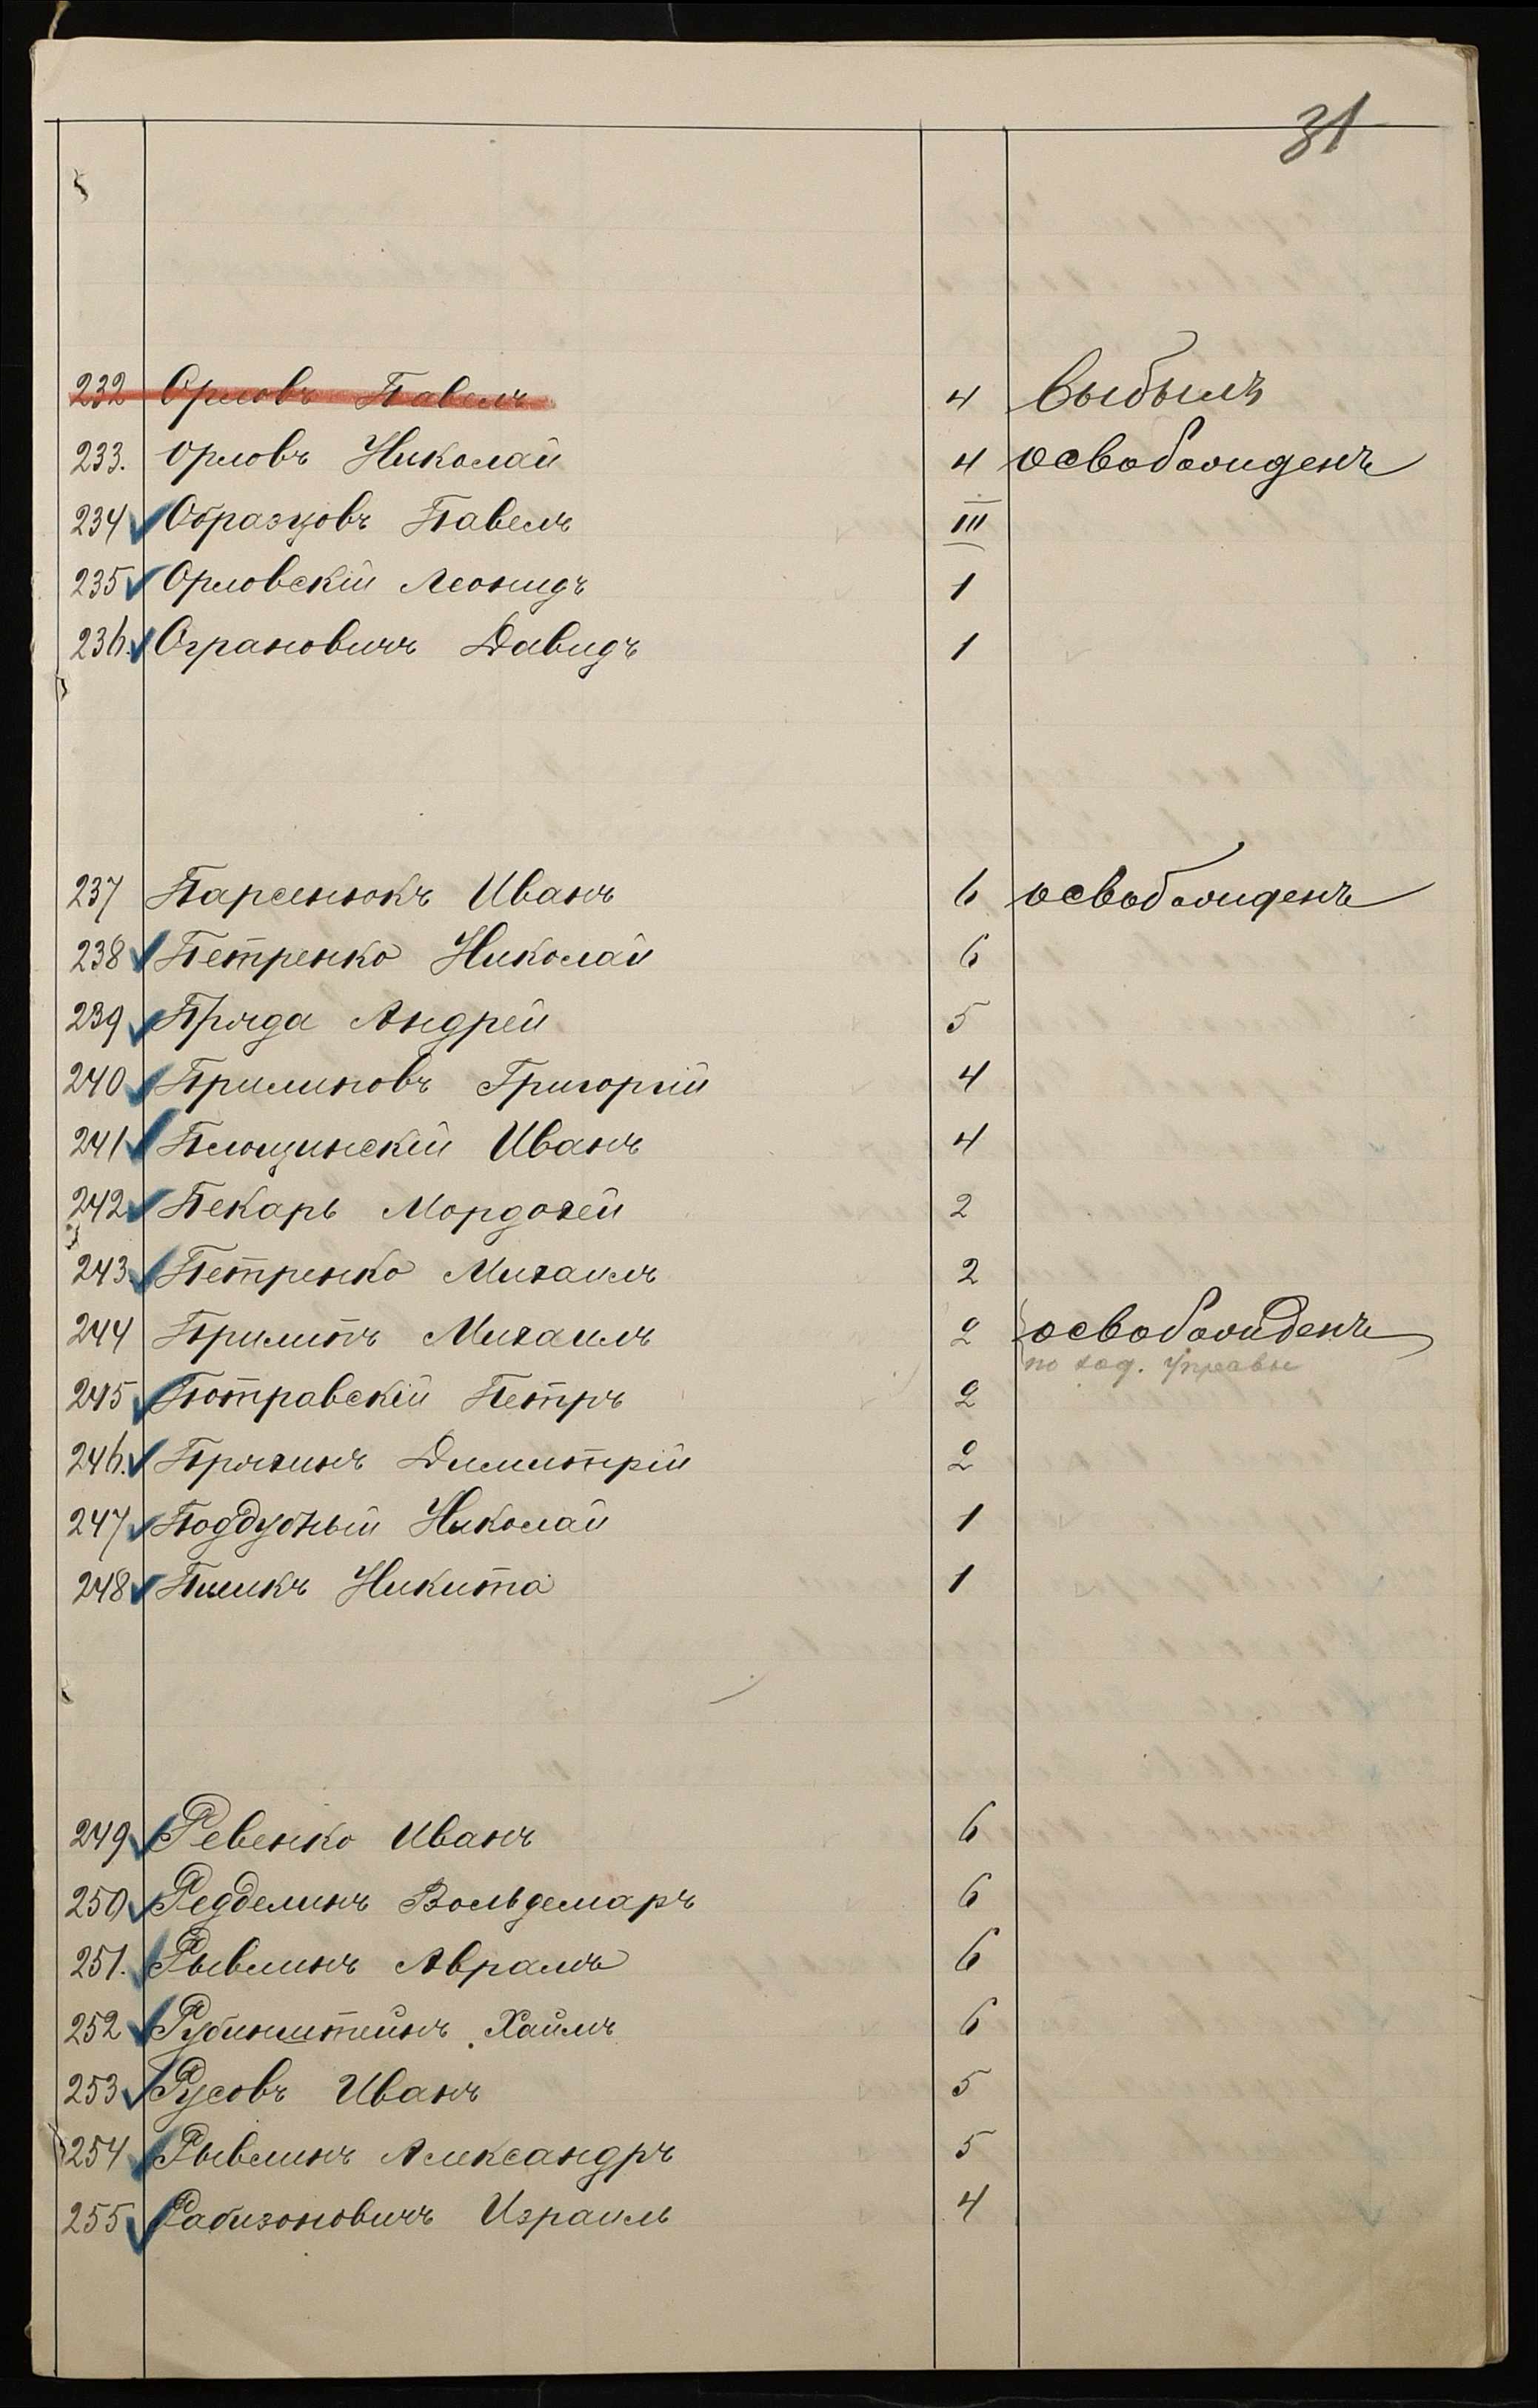 31
232 Орловъ Павелъ 4 выбылъ
233. Орловъ Николай 4 освобожденъ
234 Образцовъ Павелъ III
235 Орловскій Леонидъ 1
236. Ограновичъ Давидъ 1
237 Парсенюкъ Иванъ 6 освобожденъ
238 Петренко Николай 6
239 Пряда Андрей 5
240 Прилиповъ Григорій 4
241 Площинскій Иванъ 4
242 Пекарь Мордохей 2
243 Петренко Михаилъ 2
244 Михаилъ 2 освобожденъ
по ход. Управы
245 Потравскій Петръ 2
246. Пряхинъ Димитрій 2
247 Поддубный Николай 1
248 Никита 1
249 Ревенко Иванъ 6
250 Редделинъ Вольдемаръ 6
251. Рывлинъ Аврамъ 6
252 Рубинштейнъ Хаимъ 6
253 Русовъ Иванъ 5
254 Рывлинъ Александръ 5
255 Рабизоновичъ Израиль 4